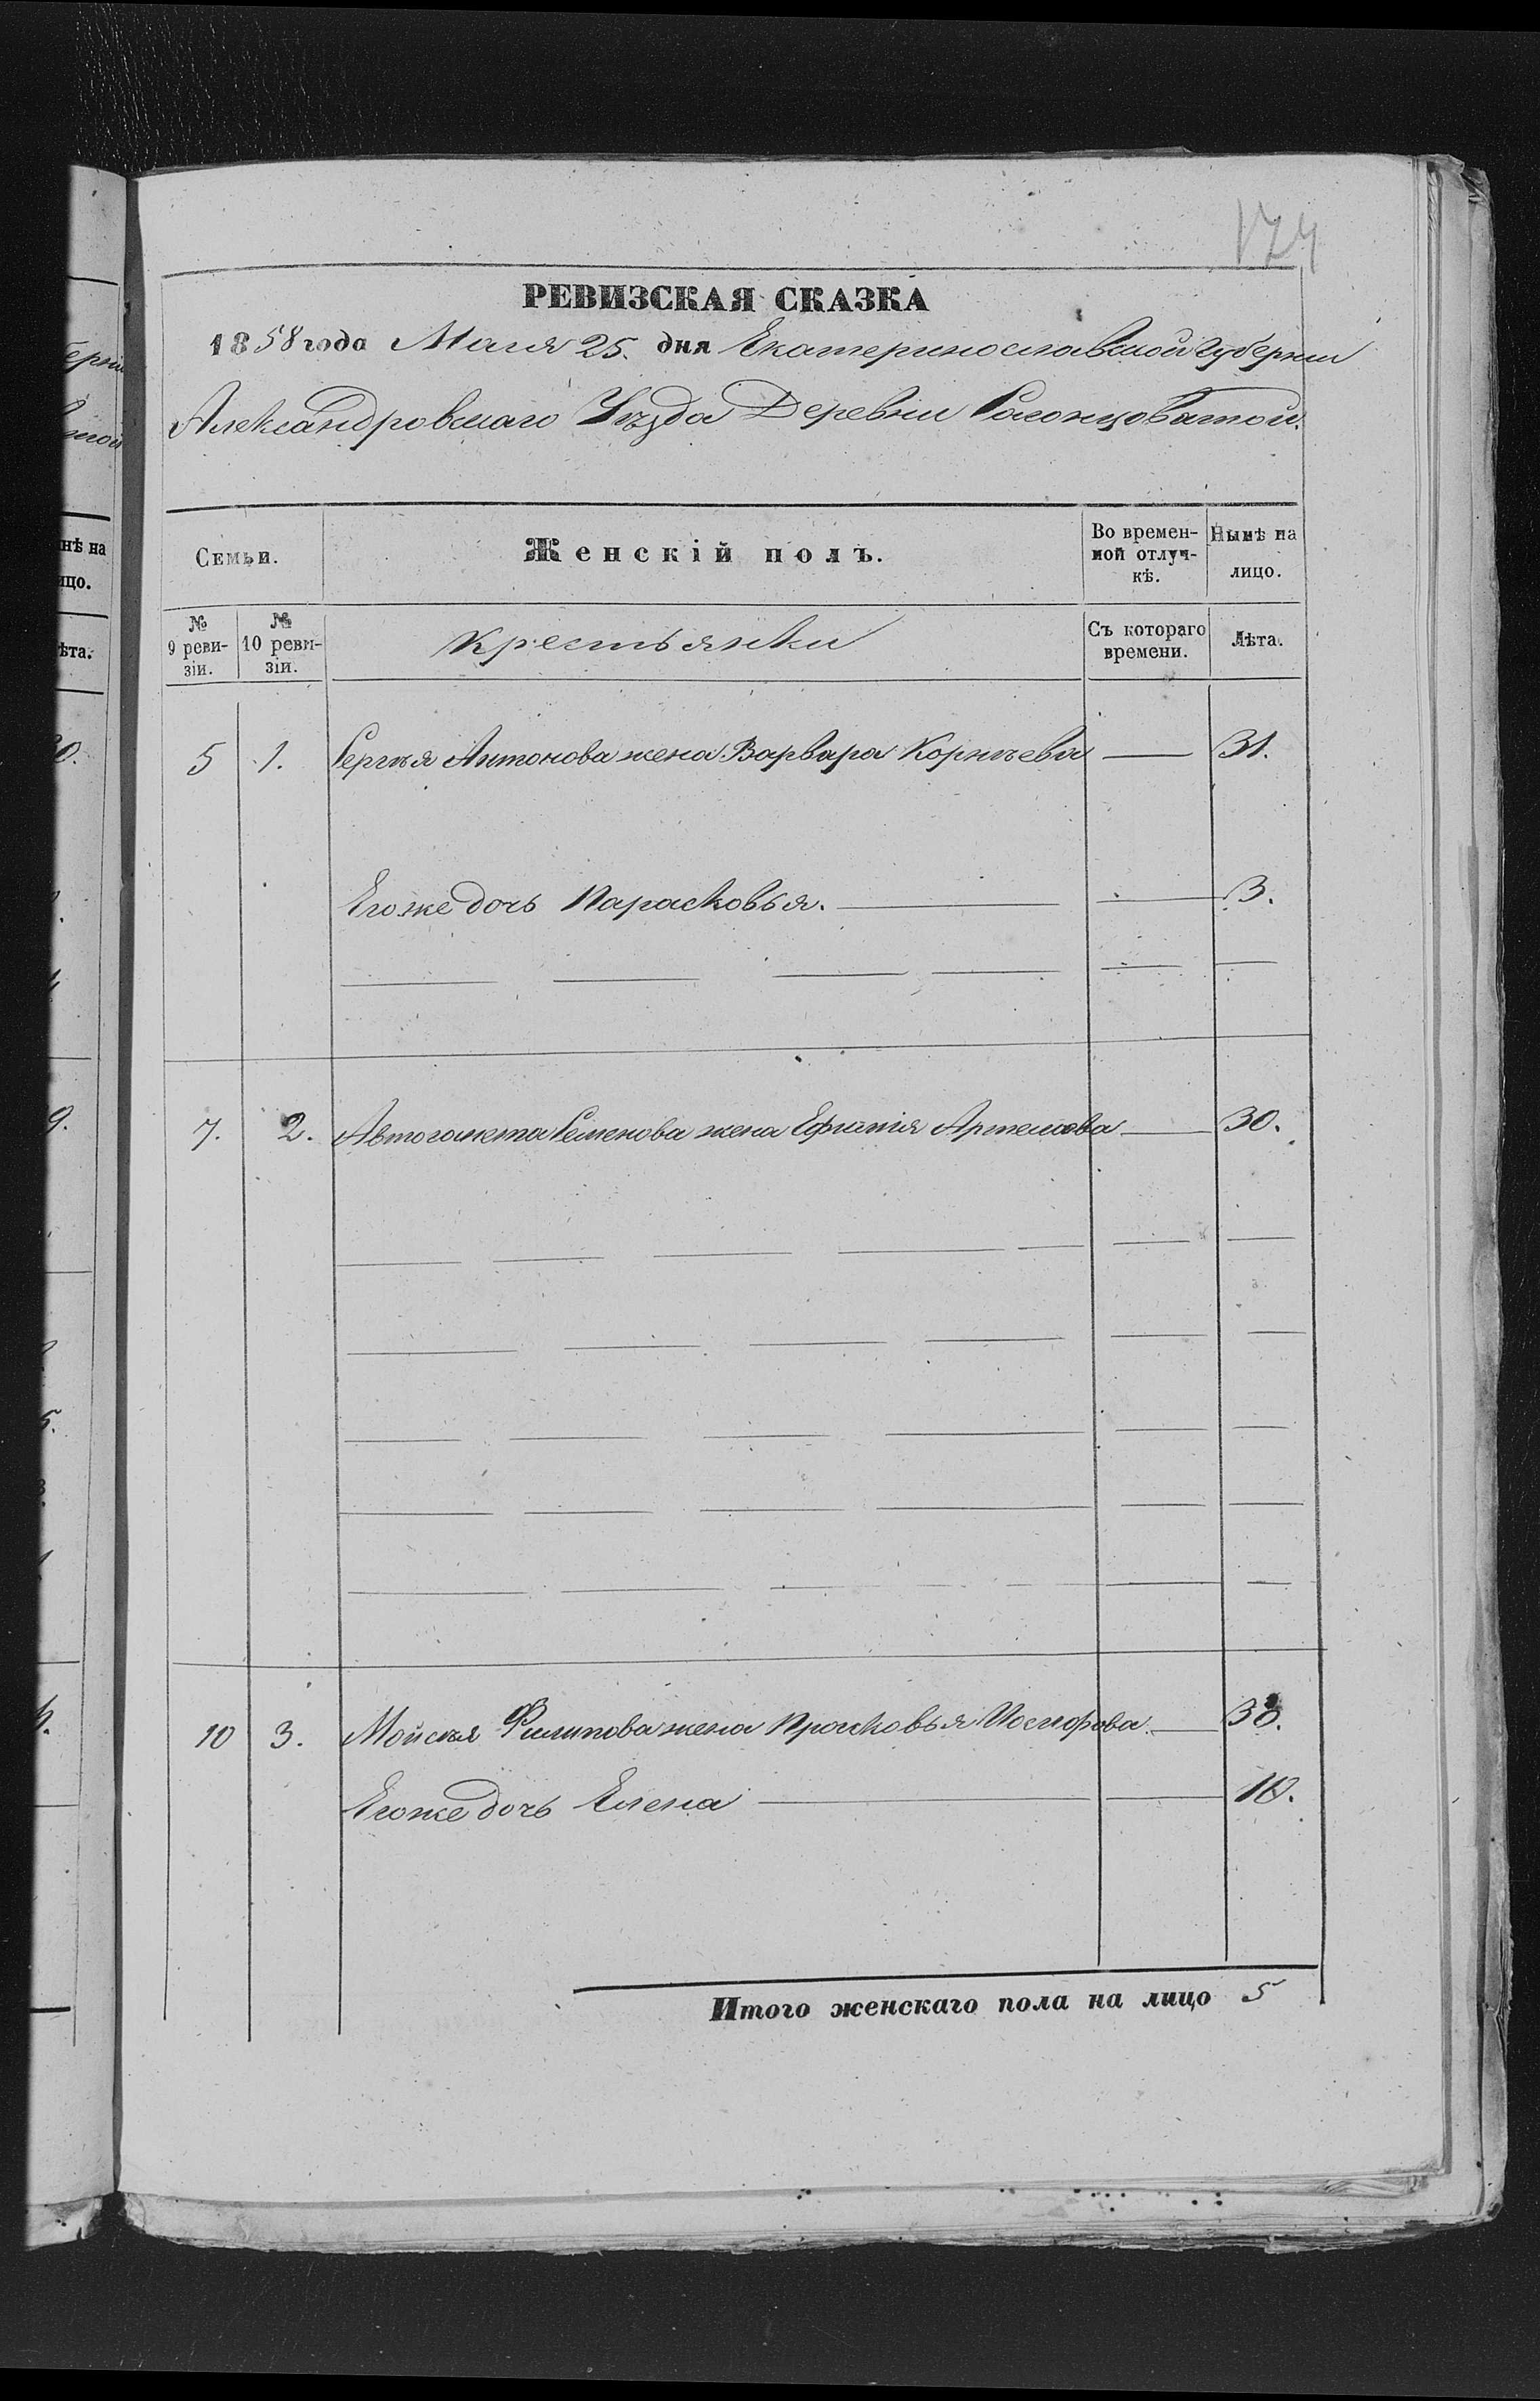 174
РЕВИЗСКАЯ СКАЗКА
1858 года Маия 25. дня Екатеринославской Губернии
Александровскаго Уѣзда Деревни Солонцоватой.
Семьи. Женскій полъ. Во времен-ной отлуч-кѣ. Нынѣ на лицо.
№ 9 реви-зіи. № 10 реви-зіи. Крестьянки Съ котораго времени. Лѣта.
5 1. Сергѣя Антонова жена Варвара Корнѣева — 31.
Его же дочь Парасковья. — 3.
7. 2. Автогомета Семенова жена Ефимія Артемова — 30.
10 3. Мойсѣя Филипова жена Прасковья Иосифова — 30.
Его же дочь Елена — 10.
Итого женскаго пола на лицо 5